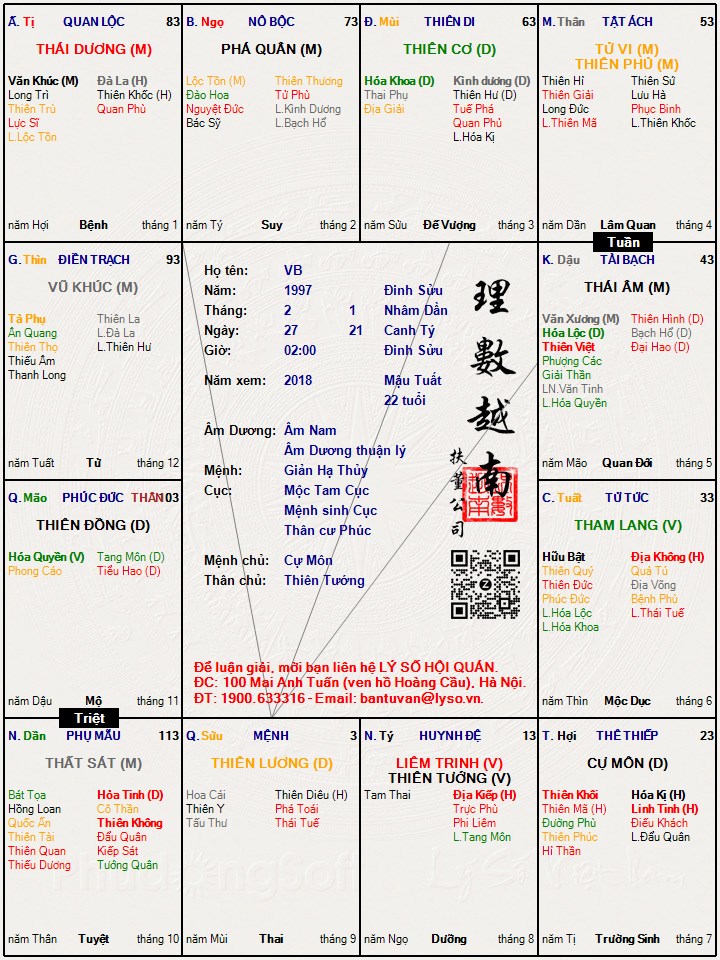 Ất. Tị QUAN LỘC 83
THÁI DƯƠNG (M)
Văn Khúc (M) Đà La (H)
Long Trì Thiên Khốc (H)
Thiên Trù Quan Phù
Lực Sĩ
L.Lộc Tồn
năm Hợi Bệnh tháng 1
B. Ngọ NÔ BỘC 73
PHÁ QUÂN (M)
Lộc Tồn (M) Thiên Thương
Đào Hoa Tử Phù
Nguyệt Đức L.Kình Dương
Bác Sỹ L.Bạch Hổ
năm Tý Suy tháng 2
Đ. Mùi THIÊN DI 63
THIÊN CƠ (D)
Hóa Khoa (D) Kình dương (D)
Thai Phụ Thiên Hư (D)
Địa Giải Tuế Phá
Quan Phủ
L.Hóa Kị
năm Sửu Đế Vượng tháng 3
M. Thân TẬT ÁCH 53
TỬ VI (M)
THIÊN PHỦ (M)
Thiên Hỉ Thiên Sứ
Thiên Giải Lưu Hà
Long Đức Phục Binh
L.Thiên Mã L.Thiên Khốc
năm Dần Lâm Quan tháng 4
Tuần
G. Thìn ĐIỀN TRẠCH 93
VŨ KHÚC (M)
Tả Phụ Thiên La
Ân Quang L.Đà La
Thiên Thọ L.Thiên Hư
Thiếu Âm
Thanh Long
năm Tuất Tử tháng 12
Họ tên: VB
Năm: 1997 Đinh Sửu
Tháng: 2 1 Nhâm Dần
Ngày: 27 21 Canh Tý
Giờ: 02:00 Đinh Sửu
Năm xem: 2018 Mậu Tuất
22 tuổi
Âm Dương: Âm Nam
Âm Dương thuận lý
Mệnh: Giản Hạ Thủy
Cục: Mộc Tam Cục
Mệnh sinh Cục
Thân cư Phúc
Mệnh chủ: Cự Môn
Thân chủ: Thiên Tướng
理數越南
扶董公司
Để luận giải, mời bạn liên hệ LÝ SỐ HỘI QUÁN.
ĐC: 100 Mai Anh Tuấn (ven hồ Hoàng Cầu), Hà Nội.
ĐT: 1900.633316 - Email: bantuvan@lyso.vn.
K. Dậu TÀI BẠCH 43
THÁI ÂM (M)
Văn Xương (M) Thiên Hình (D)
Hóa Lộc (D) Bạch Hổ (D)
Thiên Việt Đại Hao (D)
Phượng Các
Giải Thần
LN.Văn Tinh
L.Hóa Quyền
năm Mão Quan Đới tháng 5
Q. Mão PHÚC ĐỨC THÂN 103
THIÊN ĐỒNG (D)
Hóa Quyền (V) Tang Môn (D)
Phong Cáo Tiểu Hao (D)
năm Dậu Mộ tháng 11
Triệt
C. Tuất TỬ TỨC 33
THAM LANG (V)
Hữu Bật Địa Không (H)
Thiên Quý Quả Tú
Thiên Đức Địa Võng
Phúc Đức Bệnh Phù
L.Hóa Lộc L.Thái Tuế
L.Hóa Khoa
năm Thìn Mộc Dục tháng 6
N. Dần PHỤ MẪU 113
THẤT SÁT (M)
Bát Tọa Hỏa Tinh (D)
Hồng Loan Cô Thần
Quốc Ấn Thiên Không
Thiên Tài Đẩu Quân
Thiên Quan Kiếp Sát
Thiếu Dương Tướng Quân
năm Thân Tuyệt tháng 10
Q. Sửu MỆNH 3
THIÊN LƯƠNG (D)
Hoa Cái Thiên Diêu (H)
Thiên Y Phá Toái
Tấu Thư Thái Tuế
năm Mùi Thai tháng 9
N. Tý HUYNH ĐỆ 13
LIÊM TRINH (V)
THIÊN TƯỚNG (V)
Tam Thai Địa Kiếp (H)
Trực Phù
Phi Liêm
L.Tang Môn
năm Ngọ Dưỡng tháng 8
T. Hợi THÊ THIẾP 23
CỰ MÔN (D)
Thiên Khôi Hóa Kị (H)
Thiên Mã (H) Linh Tinh (H)
Đường Phù Điếu Khách
Thiên Phúc L.Đẩu Quân
Hỉ Thần
năm Tị Trường Sinh tháng 7